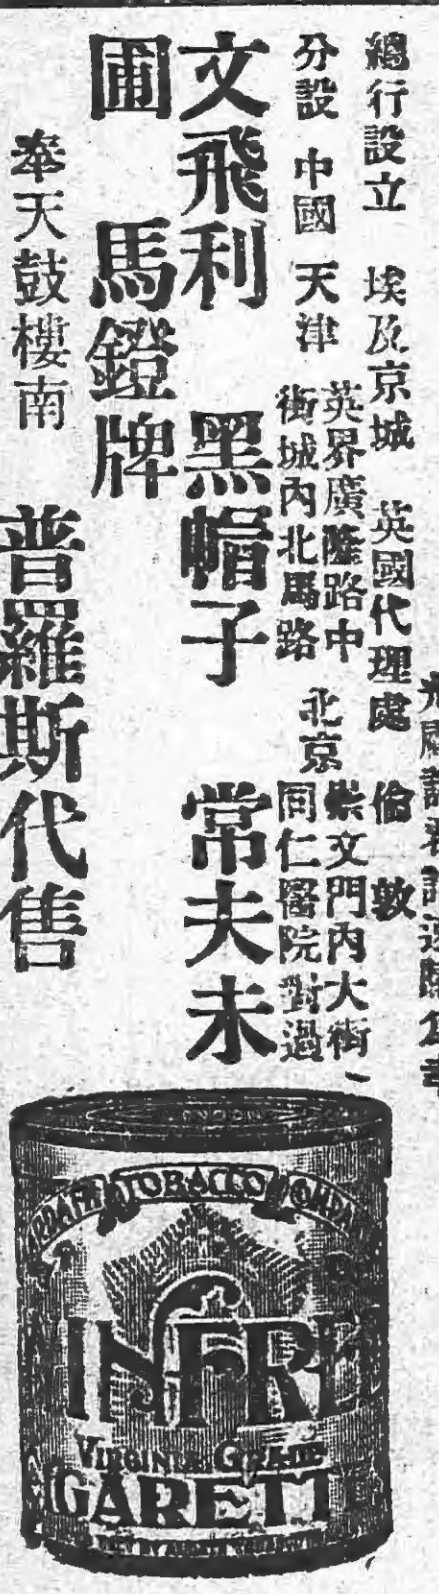 總行設立 埃及京城 英國代理處 倫敦
分設 中國 天津 英界廣隆路中街城內北馬路 北京 崇文門內大街同仁醫院對過
文飛利 黑帽子 常夫未
圃 馬鐙牌
奉天鼓樓南 普羅斯代售
TOBACCO
INFRE
VIRGINIA GRADE
IGARETT